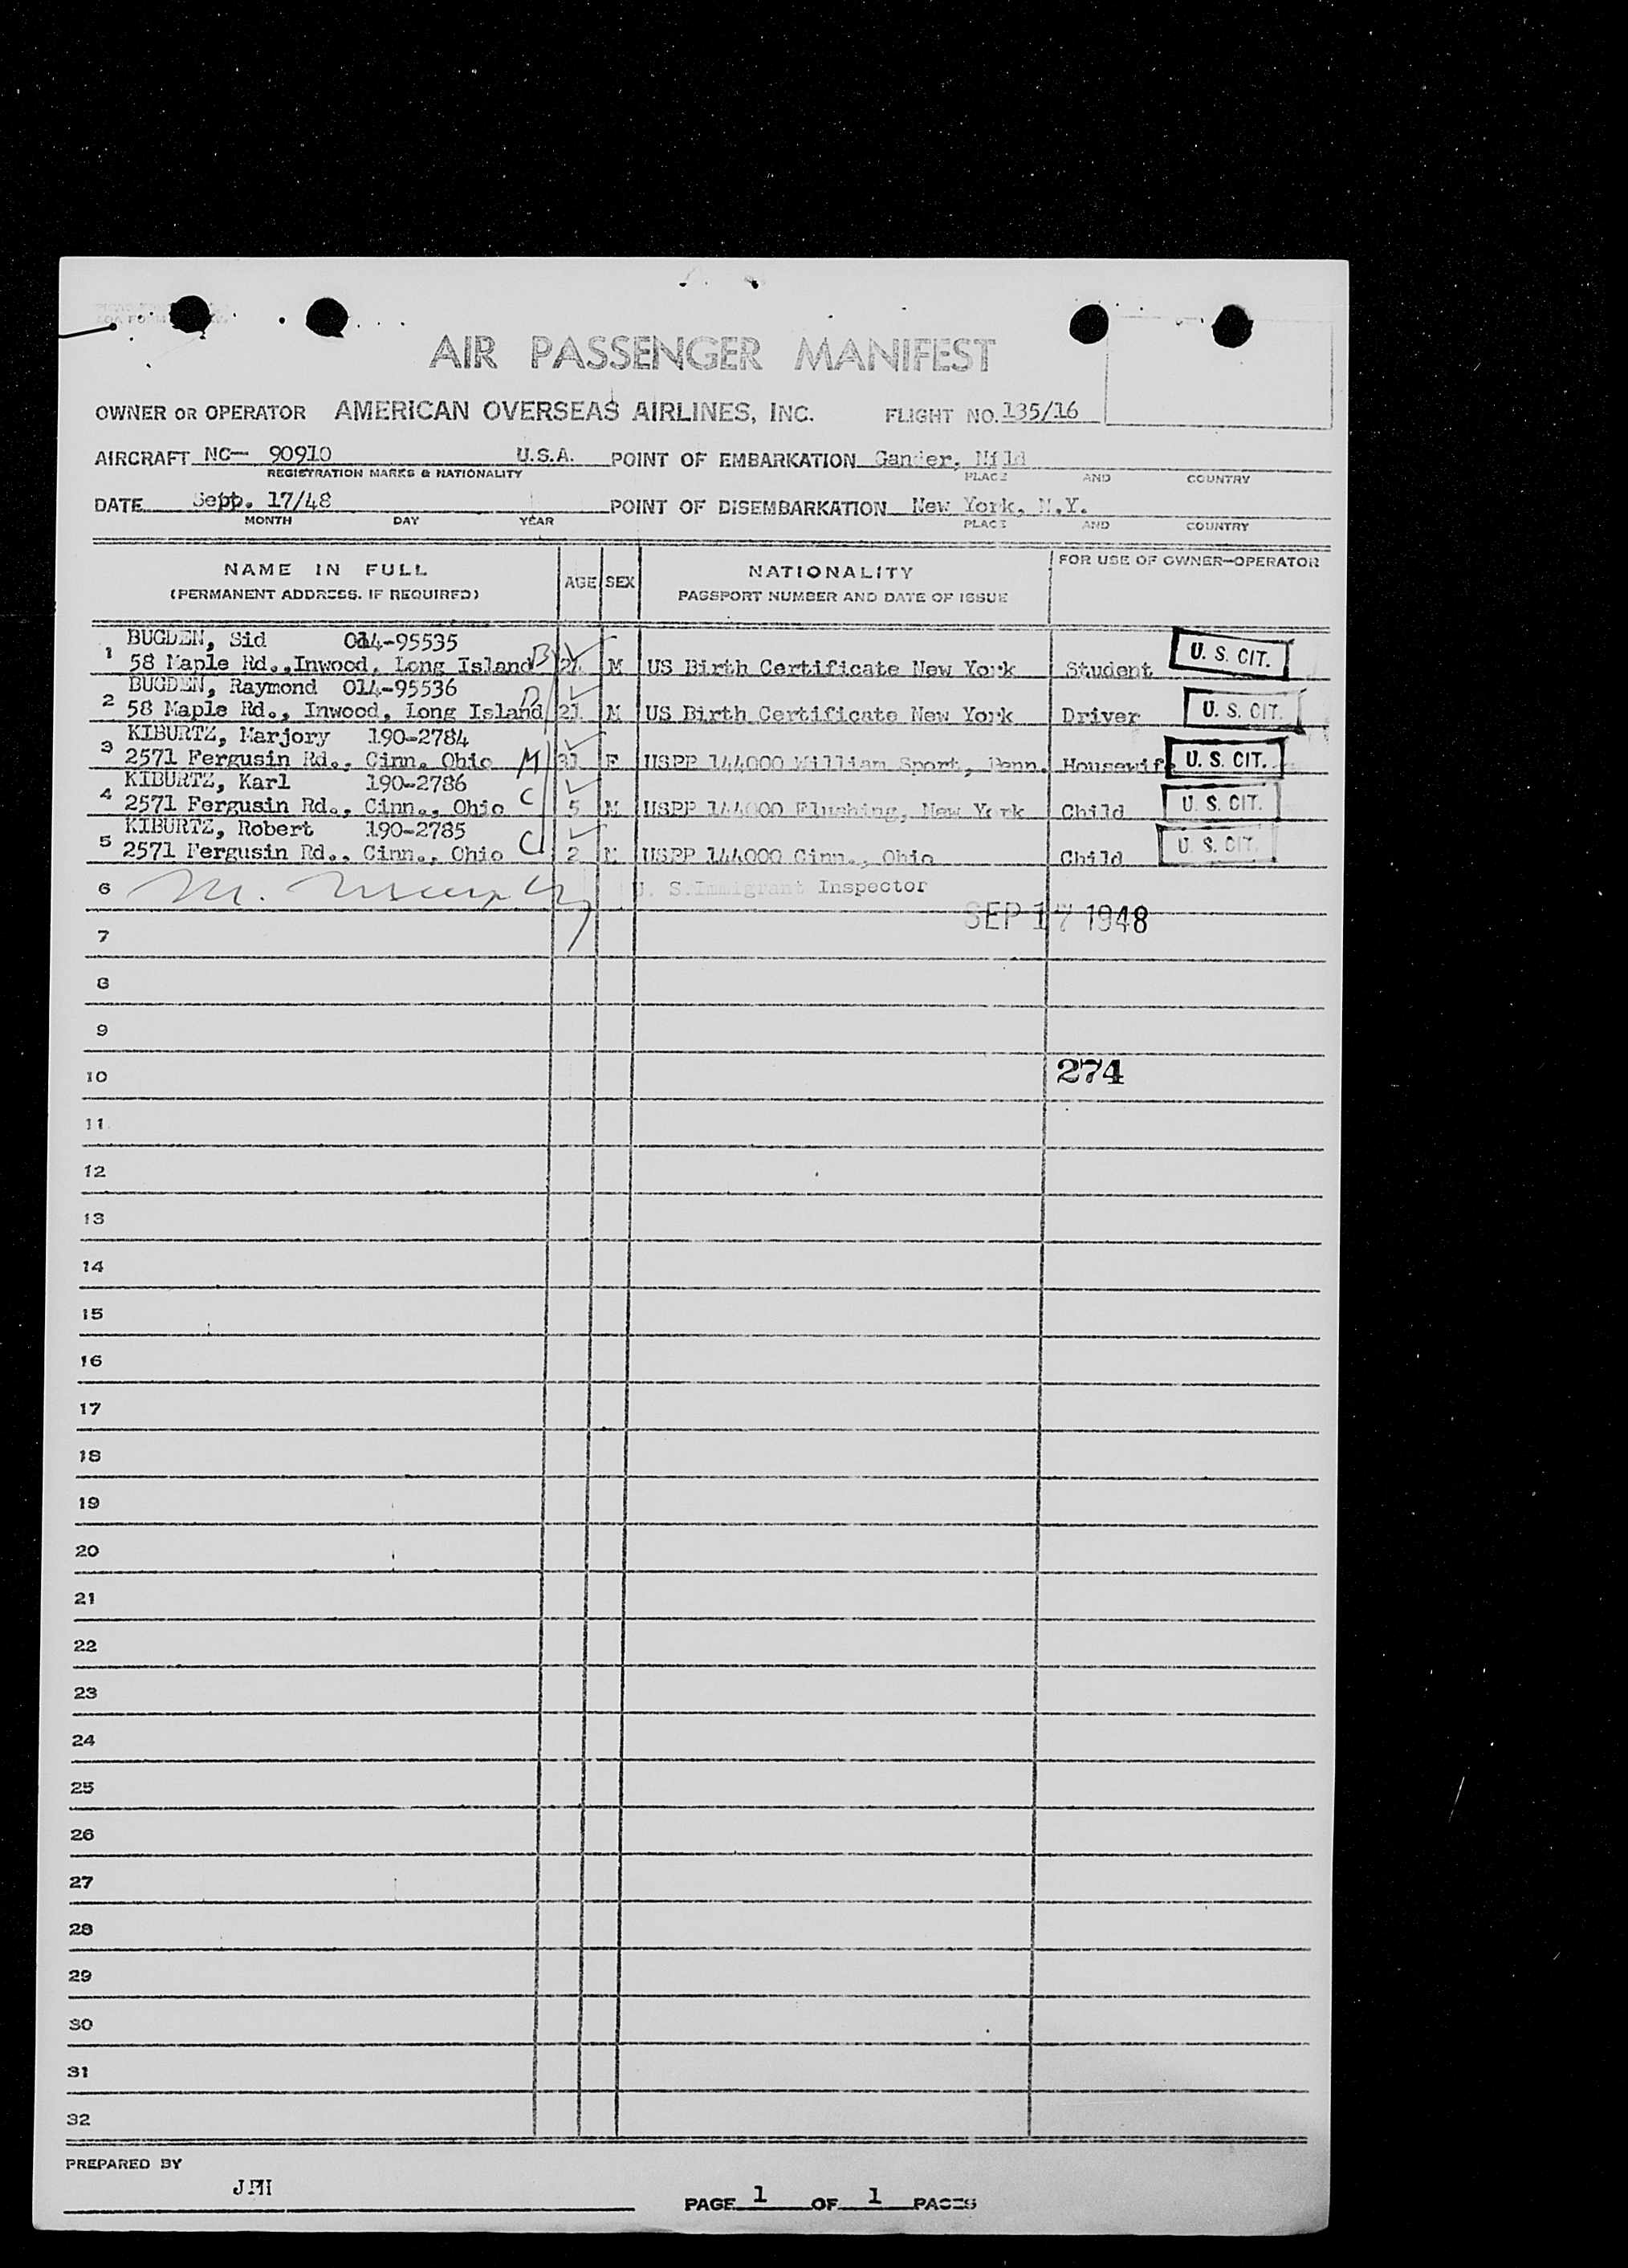 AIR PASSENGER MANIFEST
OWNER OR OPERATOR AMERICAN OVERSEAS AIRLINES, INC. FLIGHT NO. 135/16
AIRCRAFT NC— 90910 U.S.A. POINT OF EMBARKATION Gander, Nfld
REGISTRATION MARKS & NATIONALITY PLACE AND COUNTRY
DATE Sept. 17/48 POINT OF DISEMBARKATION New York, N.Y.
MONTH DAY YEAR PLACE AND COUNTRY
NAME IN FULL AGE SEX NATIONALITY FOR USE OF OWNER-OPERATOR
(PERMANENT ADDRESS, IF REQUIRED) PASSPORT NUMBER AND DATE OF ISSUE
BUGDEN, Sid 014-95535
1 58 Maple Rd.,Inwood, Long Island B M US Birth Certificate New York Student U. S. CIT.
BUGDEN, Raymond 014-95536
2 58 Maple Rd., Inwood, Long Island 21 M US Birth Certificate New York Driver U. S. CIT.
KIBURTZ, Marjory 190-2784
3 2571 Fergusin Rd., Cinn. Ohio M 31 F USPP 144000 William Sport, Penn. Housewife U. S. CIT.
KIBURTZ, Karl 190-2786
4 2571 Fergusin Rd., Cinn., Ohio C 5 M USPP 144000 Flushing, New York Child U. S. CIT.
KIBURTZ, Robert 190-2785
5 2571 Fergusin Rd., Cinn., Ohio C 2 M USPP 144000 Cinn., Ohio Child U. S. CIT.
6 M. Murphy U. S. Immigrant Inspector
SEP 17 1948
7
8
9
10 274
11
12
13
14
15
16
17
18
19
20
21
22
23
24
25
26
27
28
29
30
31
32
PREPARED BY
JMH
PAGE 1 OF 1 PAGES